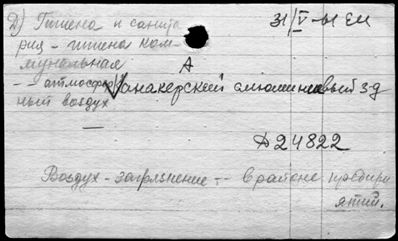 Д) Гигиена и санита
рия - гигиена ком-
мунальная
А
-- атмосфер
ный воздух
Канакерский алюминиевый з-д
31/V-61 ЕМ
Д24822
Воздух - загрязнение -- в районе предприятий.